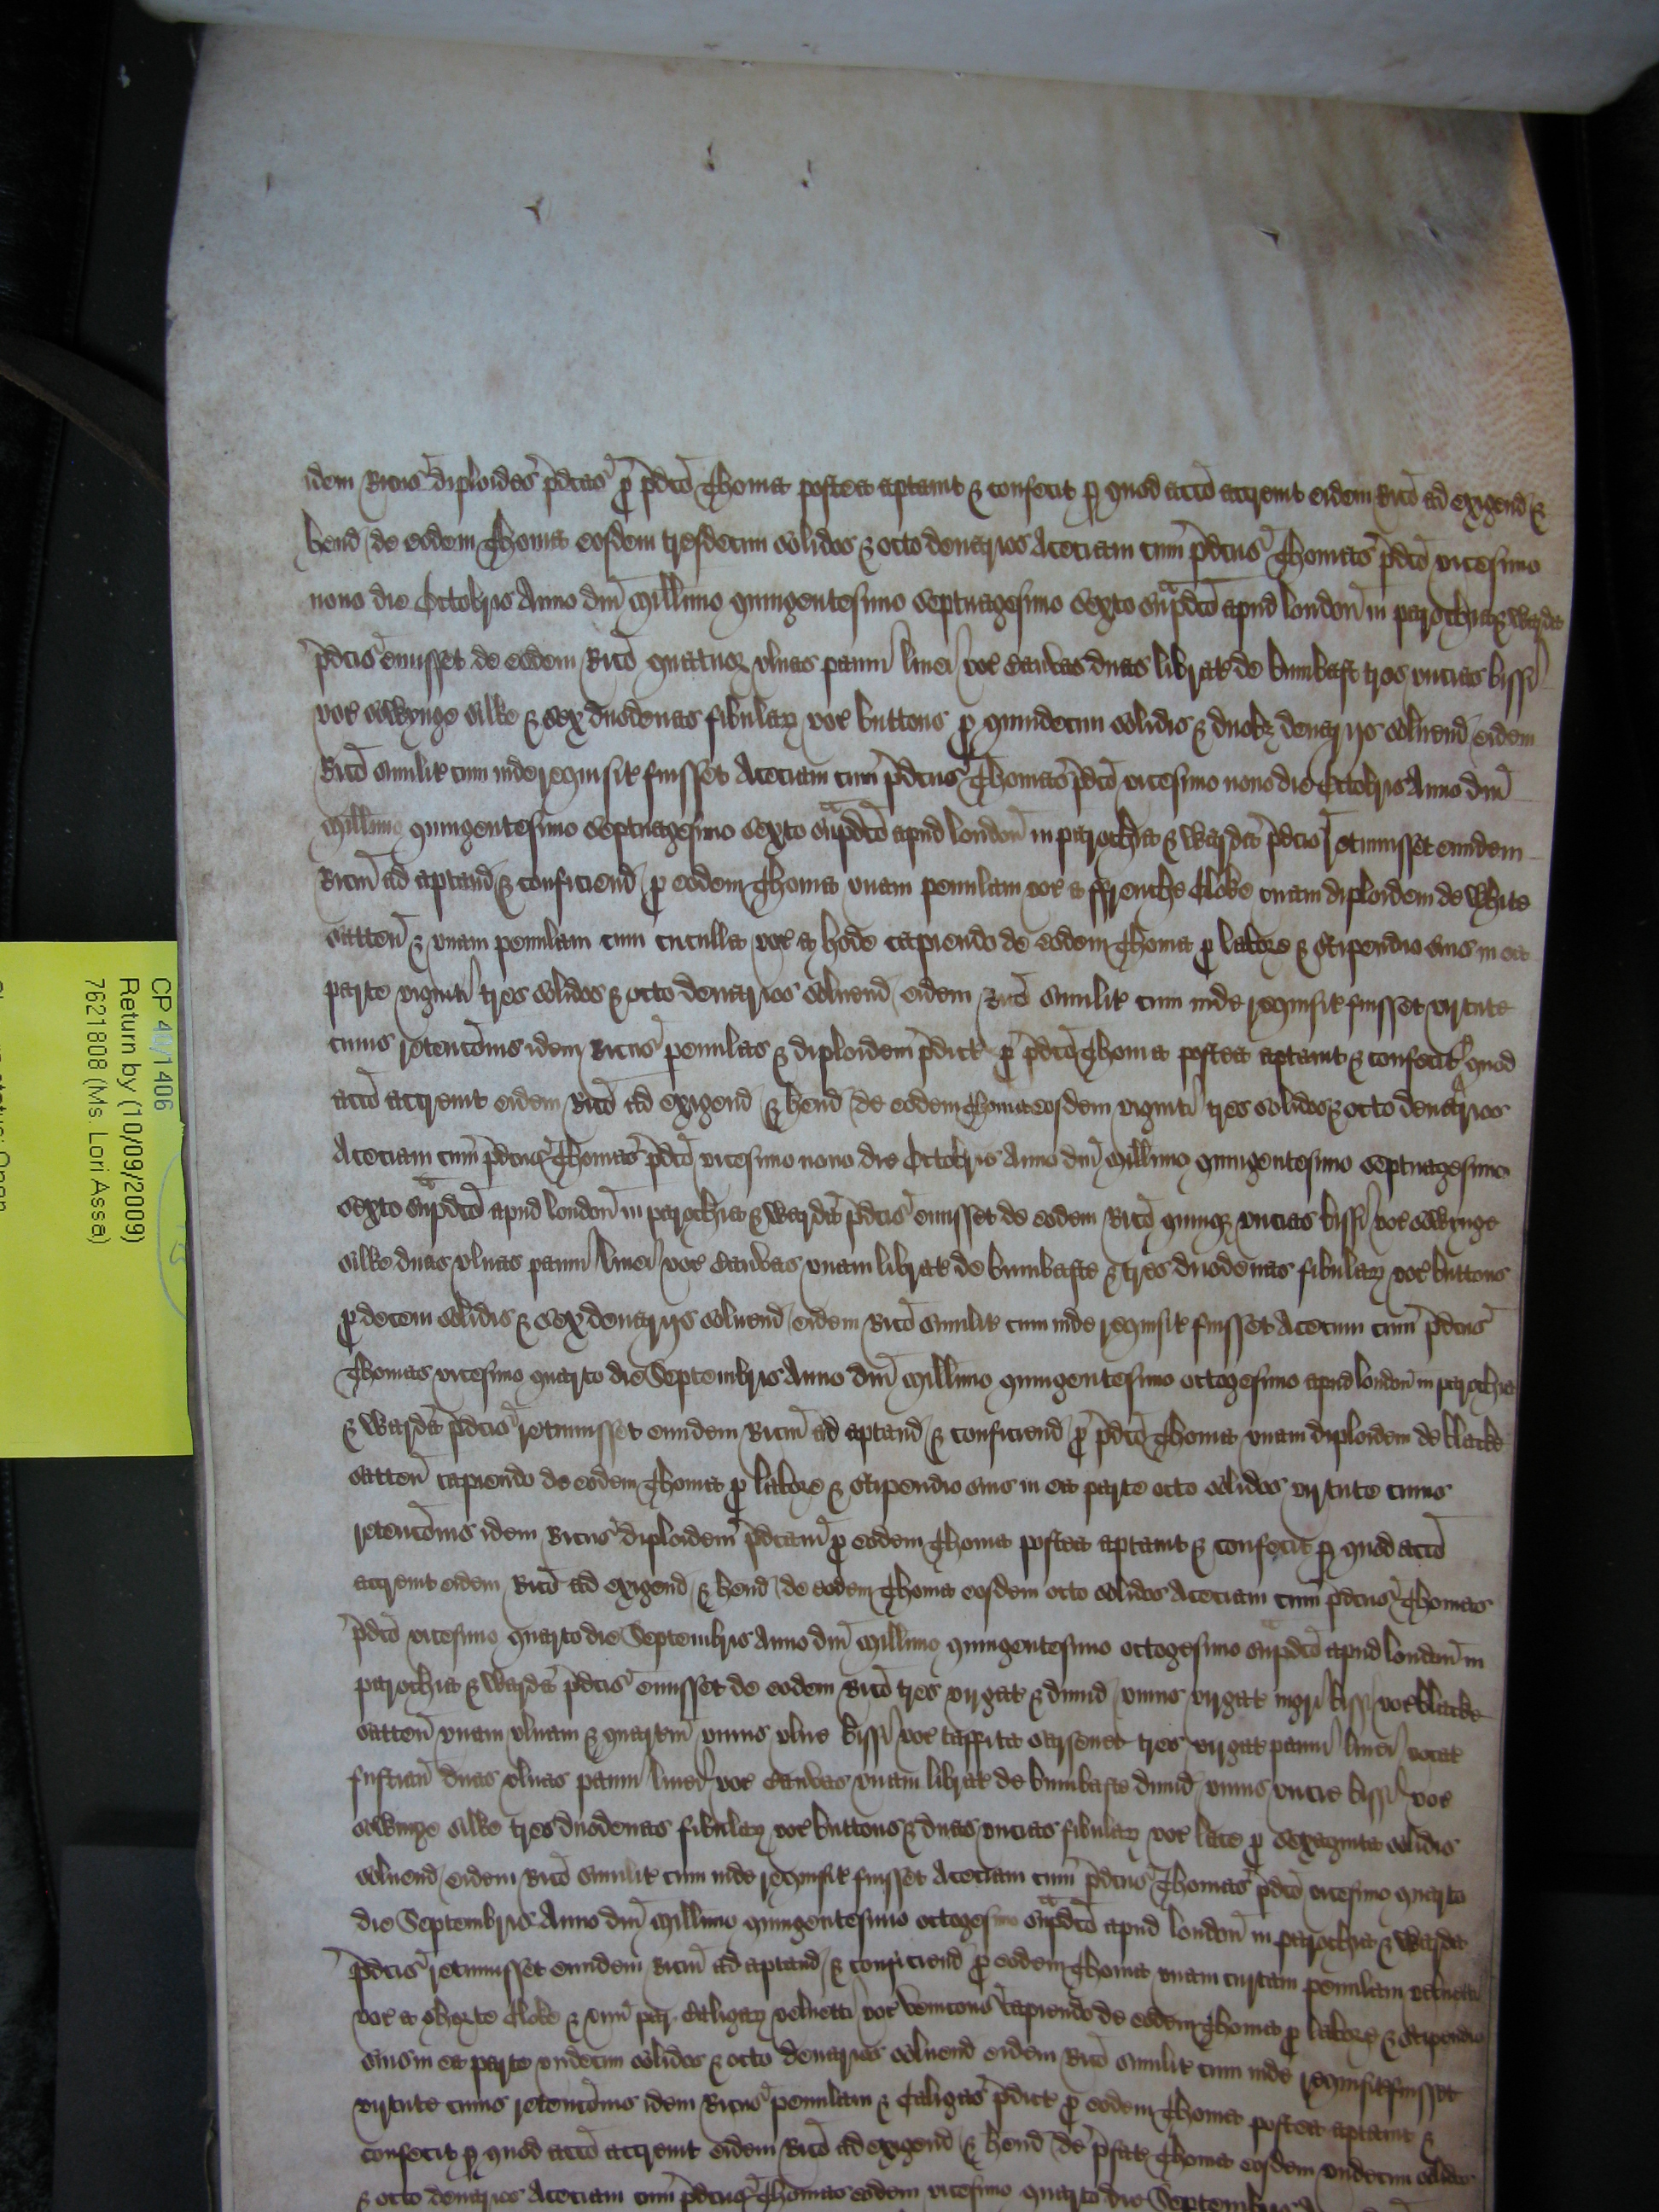 idem Ricus diploides pdcas p pdco Thoma postea aptavit & confecit p quod accio accrevit eidem Rico ad exigend &
hend de eodem Thoma eosdem tresdecim solidos & octo denarios Aceciam cum pdcus Thomas pdco vicesimo
nono die Octobris Anno dni Millimo quingentesimo septuagesimo sexto supdco apud london in parochia & warda
pdcis emisset de eodem Rico quatuor ulnas panni linei voc Canvas duas librat de bumbast tres uncias bissi
voc sowynge silke & sex duodenas fibular voc buttons p quindecim solidis & duobz denarijs solvend eidem
Rico similit cum inde requisit fuisset Aceciam cum pdcus Thomas pdco vicesimo nono die Octobris Anno dni
Millimo quingentesimo septuagesimo sexto supdco apud london in parochia & warda pdcis retinuisset eundem
Ricm ad aptand & conficiend p eodem Thoma unam penulam voc a ffrenche Cloke unam diploidem de white
satten & unam penulam cum cuculla voc a hode capiendo de eodem Thoma p labore & stipendio suis in ea
parte viginti tres solidos & octo denarios solvend eidem Rico similit cum inde requisit fuisset virtute
cuius retencois idem Ricus penulas & diploidem pdict p pdco Thoma postea aptavit & confecit p quod
accio accrevit eidem Rico ad exigend & hend de eodem Thoma eosdem viginti tres solidos & octo denarios
Aceciam cum pdcus Thomas pdco vicesimo nono die Octobris Anno dni Millimo quingentesimo septuagesimo
sexto supdco apud london in parochia & warda pdcis emisset de eodem Rico quinqz uncias bissi voc sowynge
silke duas ulnas panni linei voc Canvas unam librat de bumbaste & tres duodenas fibular voc buttons
p decem solidis & sex denarijs solvend eidem Rico similit cum inde requisit fuisset Acecim cum pdcus
Thomas vicesimo quarto die Septembris Anno dni Millimo quingentesimo octogesimo apud london in parochia
& warda pdcis retinuisset eundem Ricm ad aptand & conficiend p pdco Thoma unam diploidem de blacke
satten capiendo de eodem Thoma p labore & stipendio suis in ea parte octo solidos virtute cuius
retencois idem Ricus diploidem pdcam p eodem Thoma postea aptavit & confecit p quod accio
accrevit eidem Rico ad exigend & hend de eodem Thoma eosdem octo solidos Aceciam cum pdcus Thomas
pdco vicesimo quarto die Septembris Anno dni Millimo quingentesimo octogesimo supdco apud london in
parochia & warda pdcis emisset de eodem Rico tres virgat & dimid unius virgat nigri bissi voc blacke
satten unam ulnam & quartm unius ulne bissi voc taffita sarsenet tres virgat panni linei vocat
fustian duas ulnas panni linei voc Canvas unam librat de bumbaste dimid unius uncie bissi voc
sowinge silke tres duodenas fibular voc buttons & duas uncias fibular voc lace p sexaginta solidis
solvend eidem Rico similit cum inde requisit fuisset Aceciam cum pdcus Thomas pdco vicesimo quarto
die Septembris Anno dni Millimo quingentesimo octogesimo supdco apud london in parochia & warda
pdcis retinuisset eundem Ricm ad aptand & conficiend p eodem Thoma unam curtam penulam velvetti
voc a shorte Cloke & unu par Caligar velvetti voc venicons capiendo de eodem Thoma p labore & stipendio
suis in ea parte undecim solidos & octo denarios solvend eidem Rico similit cum inde requisit fuisset
virtute cuius retencois idem Ricus penulam & Caligas pdict p eodem Thoma postea aptavit &
confecit p quod accio accrevit eidem Rico ad exigend & hend de pfat Thoma eosdem undecim solidos
& octo denarios Aceciam cum pdcus Thomas eodem vicesimo quarto die Septembris
CP 40/1406
Return by (10/09/2009)
7621808 (Ms. Lori Asse)